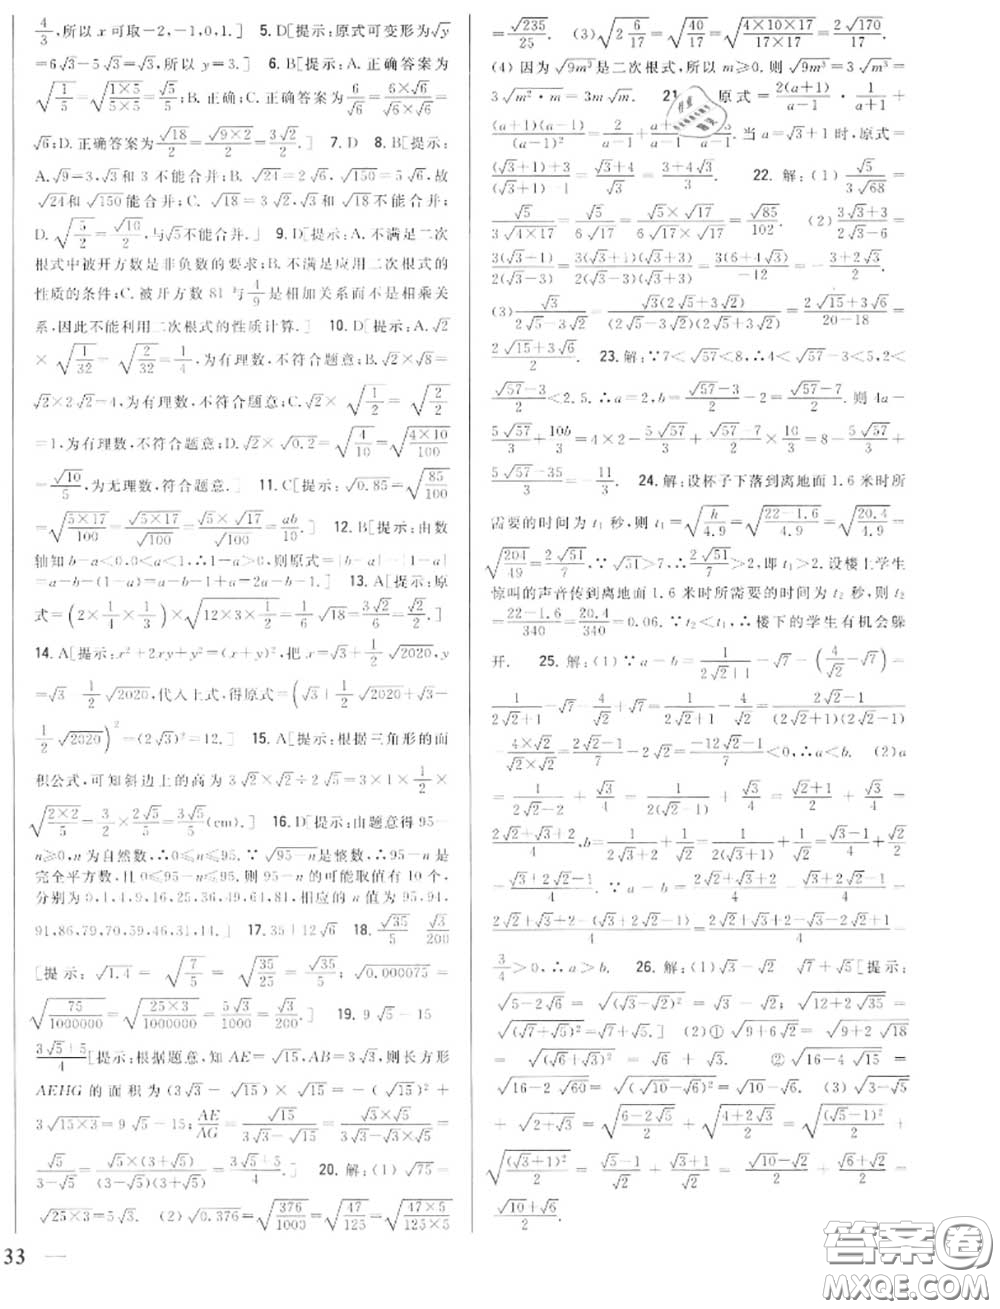 4/3,所以x可取-2,-1,0,1.] 5.D[提示:原式可变形为√y
=6√3-5√3=√3,所以y=3.] 6.B[提示:A.正确答案为
√(1/5)=√((1×5)/(5×5))=√5/5;B.正确;C.正确答案为6/√6=(6×√6)/(√6×√6)=
√6;D.正确答案为√18/2=√(9×2)/2=3√2/2.] 7.D 8.B[提示:
A.√9=3,√3和3不能合并;B.√24=2√6,√150=5√6,故
√24和√150能合并;C.√18=3√2,√3和√18不能合并;
D.√(5/2)=√10/2,与√5不能合并.] 9.D[提示:A.不满足二次
根式中被开方数是非负数的要求;B.不满足应用二次根式的
性质的条件;C.被开方数81与1/9是相加关系而不是相乘关
系,因此不能利用二次根式的性质计算.] 10.D[提示:A.√2
×√(1/32)=√(2/32)=1/4,为有理数,不符合题意;B.√2×√8=
√2×2√2=4,为有理数,不符合题意;C.√2×√(1/2)=√(2/2)
=1,为有理数,不符合题意;D.√2×√0.2=√(4/10)=√((4×10)/100)=
√10/5,为无理数,符合题意.] 11.C[提示:√0.85=√(85/100)
=√((5×17)/100)=√(5×17)/√100=(√5×√17)/√100=ab/10.] 12.B[提示:由数
轴知b-a<0,0<a<1,∴1-a>0,则原式=|b-a|-|1-a|
=a-b-(1-a)=a-b-1+a=2a-b-1.] 13.A[提示:原
式=(2×1/4×1/3)×√(12×3×1/2)=1/6√18=3√2/6=√2/2.]
14.A[提示:x²+2xy+y²=(x+y)²,把x=√3+1/2√2020,y
=√3-1/2√2020,代入上式,得原式=(√3+1/2√2020+√3-
1/2√2020)²=(2√3)²=12.] 15.A[提示:根据三角形的面
积公式,可知斜边上的高为3√2×√2÷2√5=3×1×1/2×
√((2×2)/5)=3/2×2√5/5=3√5/5(cm).] 16.D[提示:由题意得95-
n≥0,n为自然数,∴0≤n≤95.∵√(95-n)是整数,∴95-n是
完全平方数,且0≤95-n≤95.则95-n的可能取值有10个,
分别为0,1,4,9,16,25,36,49,64,81,相应的n值为95,94,
91,86,79,70,59,46,31,14.] 17.35+12√6 18.√35/5 √3/200
[提示:√1.4=√(7/5)=√(35/25)=√35/5;√0.000075=
√(75/1000000)=√((25×3)/1000000)=5√3/1000=√3/200.] 19.9√5-15
(3√5+5)/4[提示:根据题意,知AE=√15,AB=3√3,则长方形
AEHG的面积为(3√3-√15)×√15=-(√15)²+
3√(15×3)=9√5-15;AE/AG=√15/(3√3-√15)=(√3×√5)/(3√3-√3×√5)=
√5/(3-√5)=√5×(3+√5)/((3-√5)×(3+√5))=(3√5+5)/4.] 20.解:(1)√75=
√(25×3)=5√3. (2)√0.376=√(376/1000)=√(47/125)=√((47×5)/(125×5))
=√235/25. (3)√(2 6/17)=√(40/17)=√((4×10×17)/(17×17))=2√170/17.
(4)因为√(9m³)是二次根式,所以m≥0.则√(9m³)=3√(m³)=
3√(m²·m)=3m√m. 21. 原式=2(a+1)/(a-1)·1/(a+1)+
(a+1)(a-1)/(a-1)²=2/(a-1)+(a+1)/(a-1).当a=√3+1时,原式=
((√3+1)+3)/((√3+1)-1)=(√3+4)/√3=(3+4√3)/3. 22.解:(1)√5/(3√68)=
√5/(3√(4×17))=√5/(6√17)=(√5×√17)/(6√17×√17)=√85/102. (2)(3√3+3)/(2√3-6)=
3(√3+1)/(2(√3-3))=3(√3+1)(√3+3)/(2(√3-3)(√3+3))=3(6+4√3)/(-12)=-(3+2√3)/2.
(3)√3/(2√5-3√2)=√3(2√5+3√2)/((2√5-3√2)(2√5+3√2))=(2√15+3√6)/(20-18)=
(2√15+3√6)/2. 23.解:∵7<√57<8,∴4<√57-3<5,2<
(√57-3)/2<2.5.∴a=2,b=(√57-3)/2-2=(√57-7)/2.则4a-
5√57/3+10b/3=4×2-5√57/3+(√57-7)/2×10/3=8-5√57/3+
(5√57-35)/3=-11/3. 24.解:设杯子下落到离地面1.6米时所
需要的时间为t₁秒,则t₁=√(h/4.9)=√((22-1.6)/4.9)=√(20.4/4.9)=
√(204/49)=2√51/7,∵√51>7,∴2√51/7>2,即t₁>2.设楼上学生
惊叫的声音传到离地面1.6米时所需要的时间为t₂秒,则t₂
=(22-1.6)/340=20.4/340=0.06.∵t₂<t₁,∴楼下的学生有机会躲
开. 25.解:(1)∵a-b=1/(2√2+1)-√7-(4/√2-√7)=
1/(2√2+1)-√7-4/√2+√7=1/(2√2+1)-4/√2=(2√2-1)/((2√2+1)(2√2-1))
-(4×√2)/(√2×√2)=(2√2-1)/7-2√2=(-12√2-1)/7<0,∴a<b. (2)a
=1/(2√2-2)+√3/4=1/(2(√2-1))+√3/4=(√2+1)/2+√3/4=
(2√2+√3+2)/4,b=1/(2√3+2)+1/√2=1/(2(√3+1))+1/√2=(√3-1)/4+√2/2
=(√3+2√2-1)/4.∵a-b=(2√2+√3+2)/4-(√3+2√2-1)/4=
(2√2+√3+2-(√3+2√2-1))/4=(2√2+√3+2-√3-2√2+1)/4=
3/4>0,∴a>b. 26.解:(1)√3-√2 √7+√5[提示:
√(5-2√6)=√((√3-√2)²)=√3-√2;√(12+2√35)=
√((√7+√5)²)=√7+√5.] (2)①√(9+6√2)=√(9+2√18)
=√((√6+√3)²)=√6+√3. ②√(16-4√15)=
√(16-2√60)=√((√10-√6)²)=√10-√6. (3)√(3-√5)
+√(2+√3)=√((6-2√5)/2)+√((4+2√3)/2)=√((√5-1)²/2)+
√((√3+1)²/2)=(√5-1)/√2+(√3+1)/√2=(√10-√2)/2+(√6+√2)/2=
(√10+√6)/2.
33
答案圈
MXQE.COM